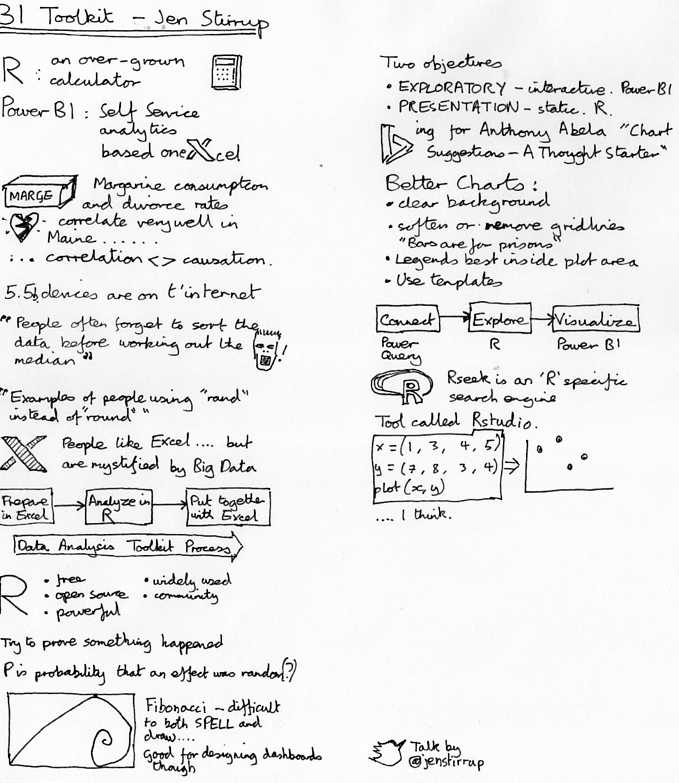 BI Toolkit - Jen Stirrup
R : an over-grown
calculator
Power BI : Self Service
analytics
based one Xcel
MARGE
Margarine consumption
and divorce rates
- correlate very well in
Maine ......
∴ correlation <> causation.
5.5b devices are on t'internet
"People often forget to sort the
data, before working out the
median"
!
"Examples of people using "rand"
instead of "round" "
X
People like Excel .... but
are mystified by Big Data
Prepare
in Excel
Analyze in
R
Put together
with Excel
Data Analysis Toolkit Process
R
• free
• open source
• powerful
• widely used
• community
Try to prove something happened
P is probability that an effect was random(?)
Fibonacci - difficult
to both SPELL and
draw....
Good for designing dashboards
though
Two objectives
• EXPLORATORY - interactive. Power BI
• PRESENTATION - static. R.
ing for Anthony Abela "Chart
Suggestions - A Thought Starter"
Better Charts :
• clear background
• soften or remove gridlines
"Bars are for prisons"
• Legends best inside plot area
• Use templates
Connect
Explore
Visualize
Power
Query
R
Power BI
R
Rseek is an 'R' specific
search engine
Tool called Rstudio.
x = (1, 3, 4, 5)
y = (7, 8, 3, 4)
plot (x, y)
.... I think.
Talk by
@jenstirrup